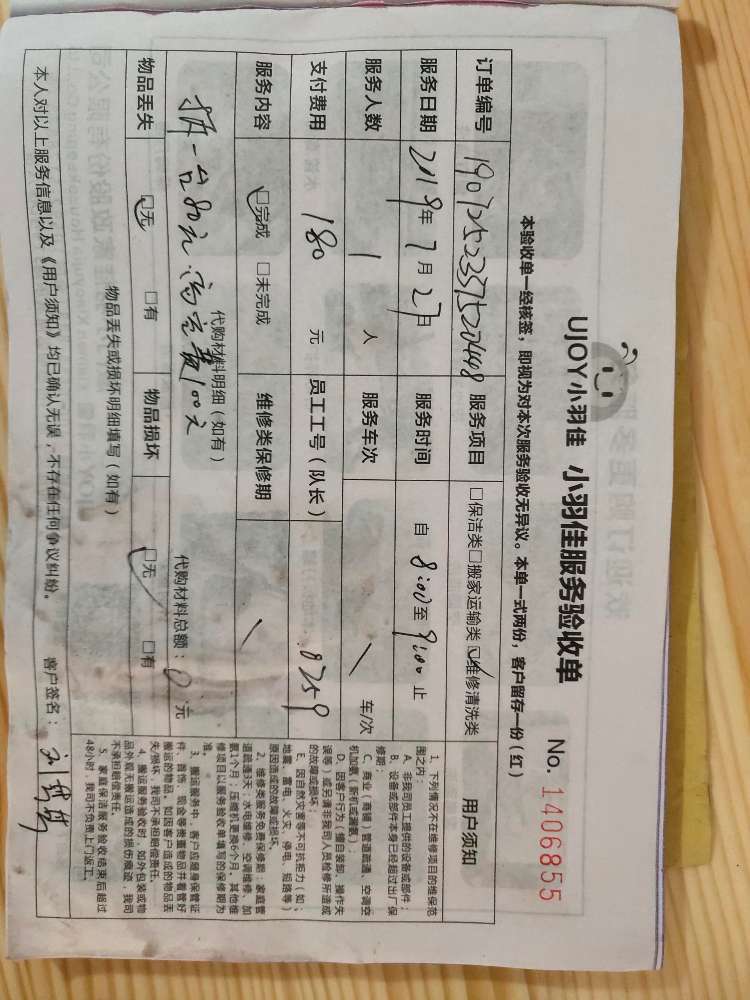 UJOY小羽佳 小羽佳服务验收单 No. 1406855
本验收单一经核签，即视为对本次服务验收无异议。本单一式两份，客户留存一份（红）
订单编号 服务项目 □保洁类□搬家运输类☑维修清洗类
服务日期 2019年7月27日 服务时间 自 8:00至9:00止
服务人数 1 人 服务车次 / 车/次
支付费用 180 元 员工工号（队长） 8759
服务内容 ☑完成 □未完成 维修类保修期 /
代购材料明细（如有）
一台80元 100元
代购材料总额：0元
物品丢失 ☑无 □有 物品损坏 ☑无 □有
物品丢失或损坏明细填写（如有）
本人对以上服务信息以及《用户须知》均已确认无误，不存在任何争议纠纷。 客户签名：
用户须知
1、下列情况不在维修项目的维保范
围之内：
A、非我司员工提供的设备或部件；
B、设备或部件本身已经超过出厂保
修期；
C、商业（商铺）管道疏通、空调空
机加氨（新机或漏氨）
D、因客户行为（擅自装卸、操作失
误等）或另请非我司人员检修所造成
的故障或损坏；
E、因自然灾害等不可抗拒力（如：
地震、雷电、火灾、停电、短路等）
原因造成的故障或损坏。
2、维修类服务免费保修期：家庭管
道疏通3天；水电维修、空调维修、加
氨1个月；压缩机更换6个月，其他维
修项目以服务验收单填写的保修期为
准。
3、搬运服务中，客户应随身保管证
件、首饰、现金等贵重物品并看管好
搬运的物品，如因客户造成的物品丢
失/损坏，我司不承担赔偿责任。
4、搬运服务验收时，如外包装或物
品外观无搬运造成的损伤痕迹，我司
不承担赔偿责任。
5、家庭保洁服务验收结束后超过
48小时，我司不负责上门返工。